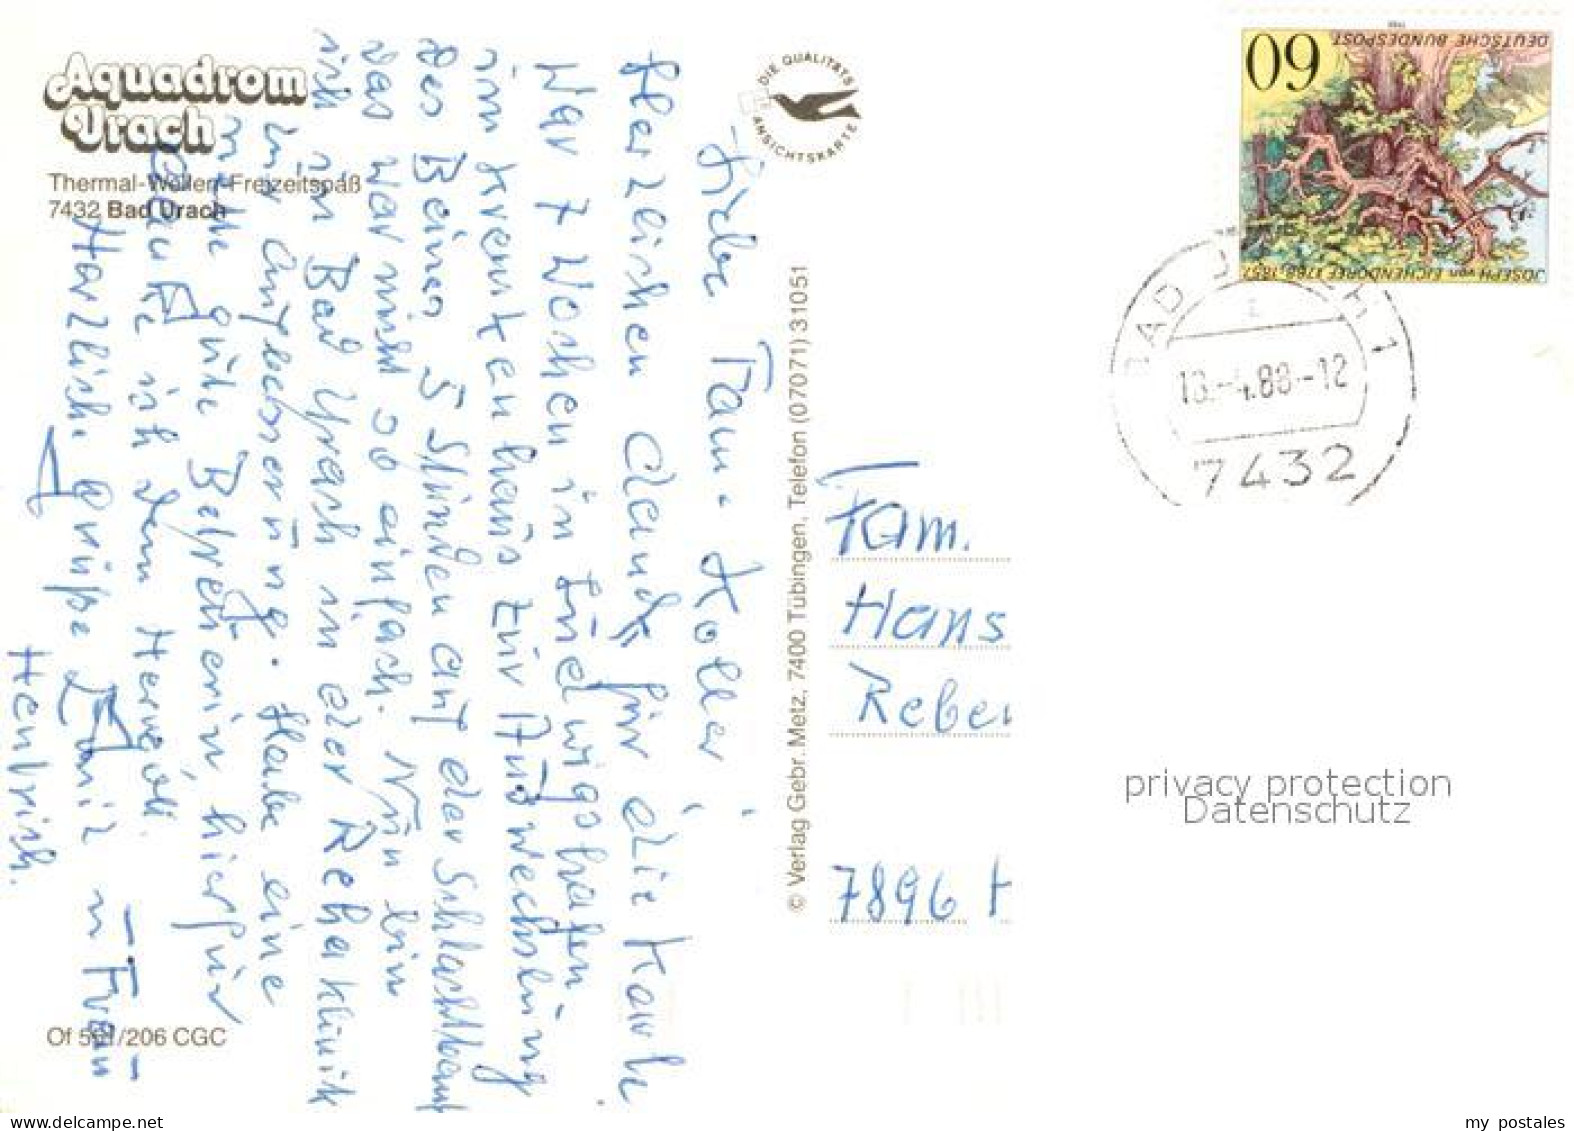 Aquadrom
Urach
Thermal-Wellen-Freizeitspaß
7432 Bad Urach
DIE QUALITÄTS
ANSICHTSKARTE
Liebe Fam. Koller
Herzlichen Dank für die Karte.
War 7 Wochen in Ludwigshafen
im Krankenhaus zur Auswechslung
der Beine. 5 Stunden auf der Schlachtbank
das war nicht so einfach. Nun bin
ich in Bad Urach in der Rehaklinik
zur Ausbesserung. Habe eine
nette gute Betreuerin, hierfür
danke ich dem
Herzliche Grüße Emil u Frau
Henrich.
© Verlag Gebr. Metz, 7400 Tübingen, Telefon (07071) 31051
Of 501/206 CGC
60
DEUTSCHE BUNDESPOST
1988
JOSEPH von EICHENDORFF 1788-1857
BAD URACH 1
13.-4.88.-12
7432
Fam.
Hans
Reben
7896
privacy protection
Datenschutz
my postales
www.delcampe.net